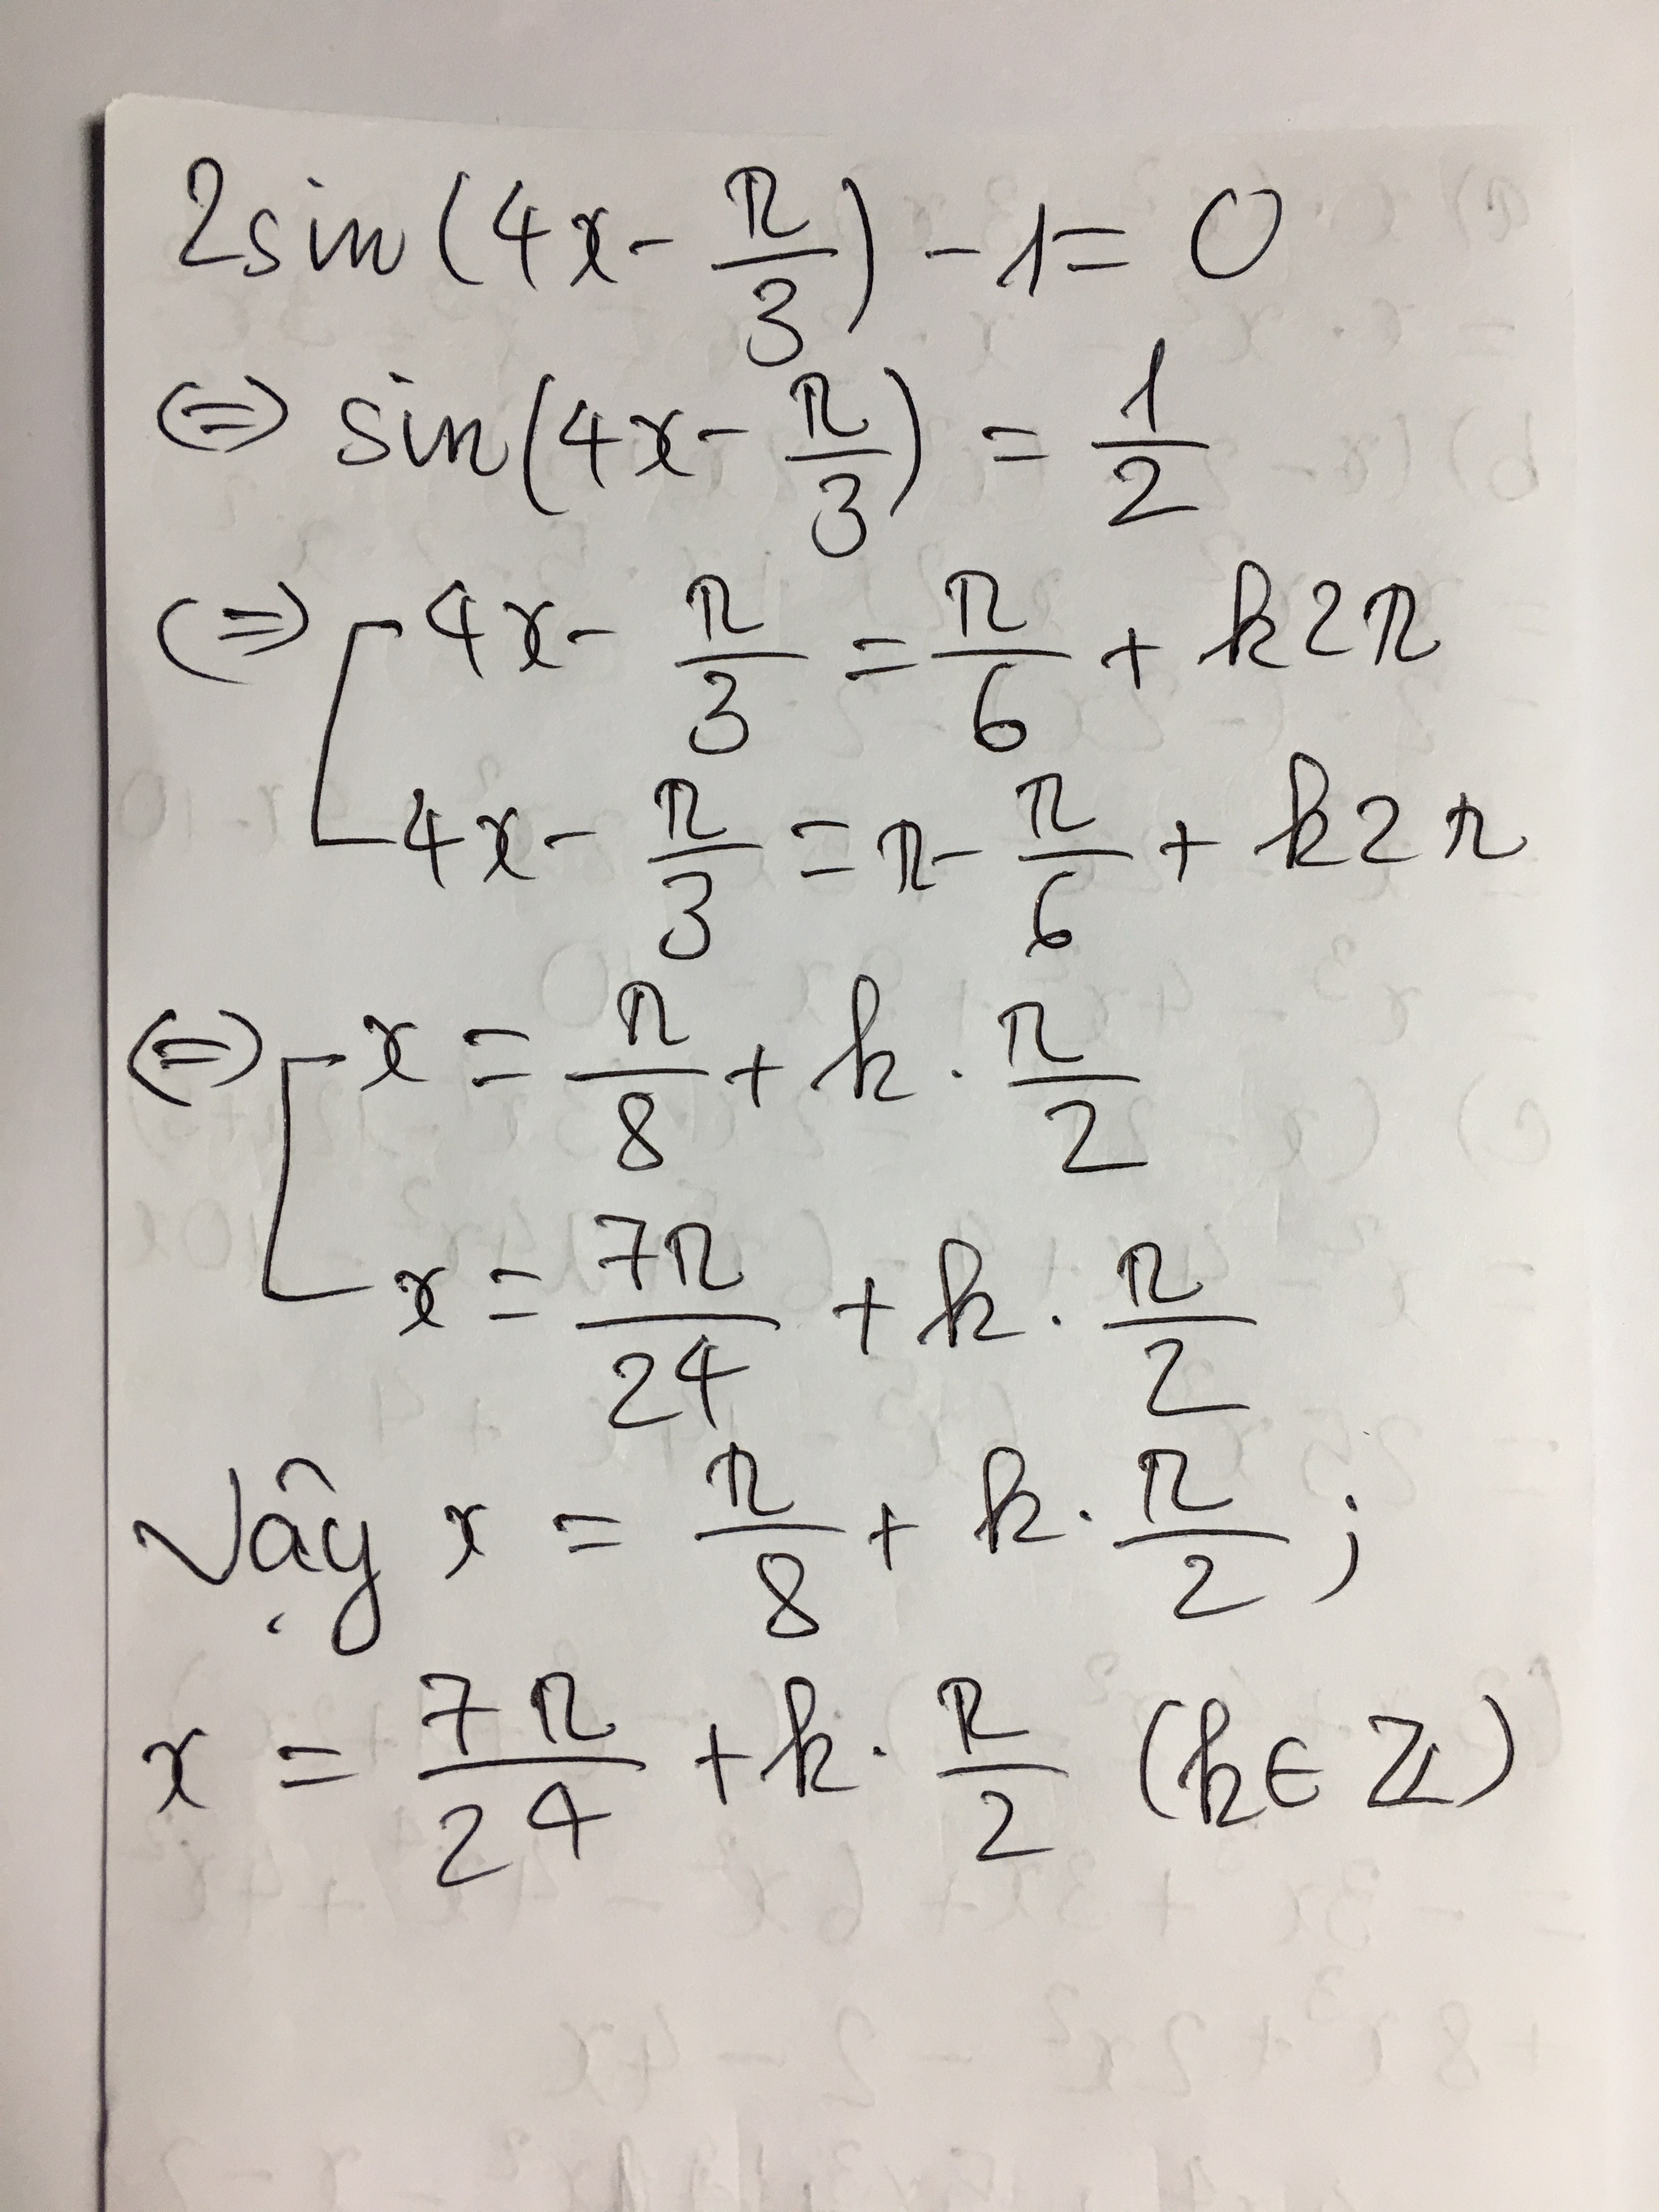 2sin(4x - π/3) - 1 = 0
(=) sin(4x - π/3) = 1/2
(=) [ 4x - π/3 = π/6 + k2π
4x - π/3 = π - π/6 + k2π
(=) [ x = π/8 + k . π/2
x = 7π/24 + k . π/2
Vậy x = π/8 + k . π/2 ;
x = 7π/24 + k . π/2 (k ∈ ℤ)